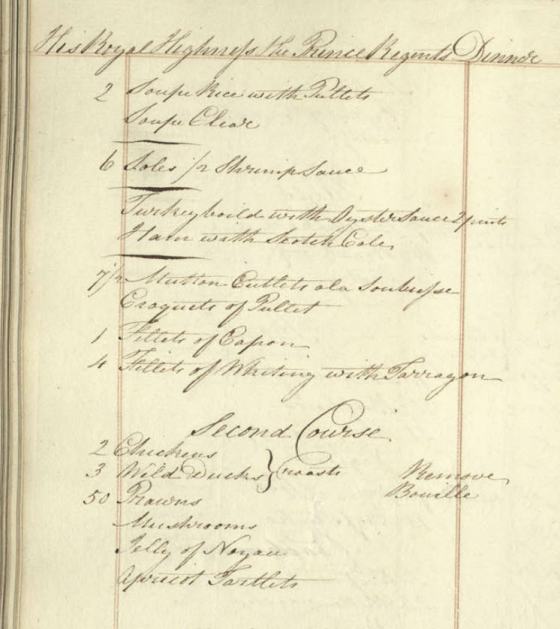 His Royal Highness the Prince Regents Dinner
2 Soupe Rice with Pullets
Soupe Clear
6 Soles 1/2 Shrimp Sauce
Turkey boild with Oyster Sauce 2 pints
Ham with Scotch Cale
7 1/2 Mutton Cutlets a la Soubisse
Croquets of Pullet
1 Fillets of Capon
4 Fillets of Whiting with Tarragon
Second Course
2 Chickens
3 Wild Ducks } roasts Remove
50 Prawns Bouille
Mushrooms
Jelly of Noyau
Apricot Tartlets